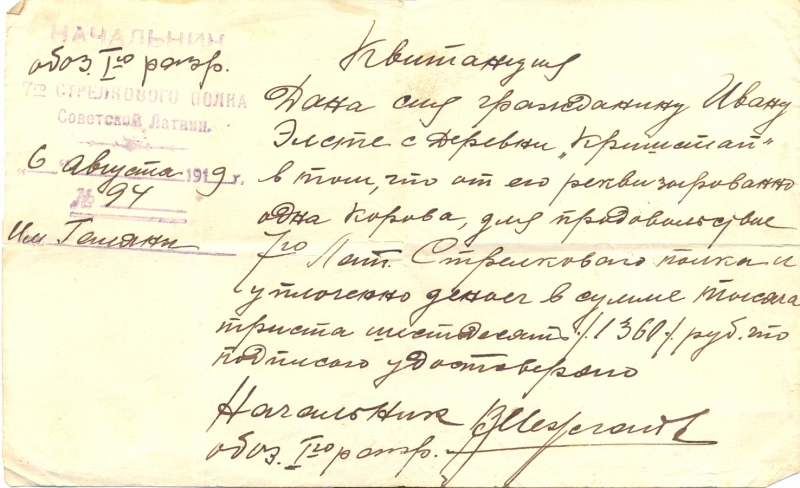 НАЧАЛЬНИК
обоз. Iго разр.
7го СТРЕЛКОВОГО ПОЛКА
Советской Латвии.
"6" Августа 1919 г.
№ 94
Им Галяни
Квитанция
Дана сия гражданину Ивану
Элсте с деревни „Кришстап"
в том, что от его реквизированно
одна корова, для продовольствие
7го Лат. Стрелкового полка и
уплоченно денег в сумме тысяча
триста шестдесять /1360/ руб. что
подписою удостоверяю
Начальник
обоз. Iго разр.